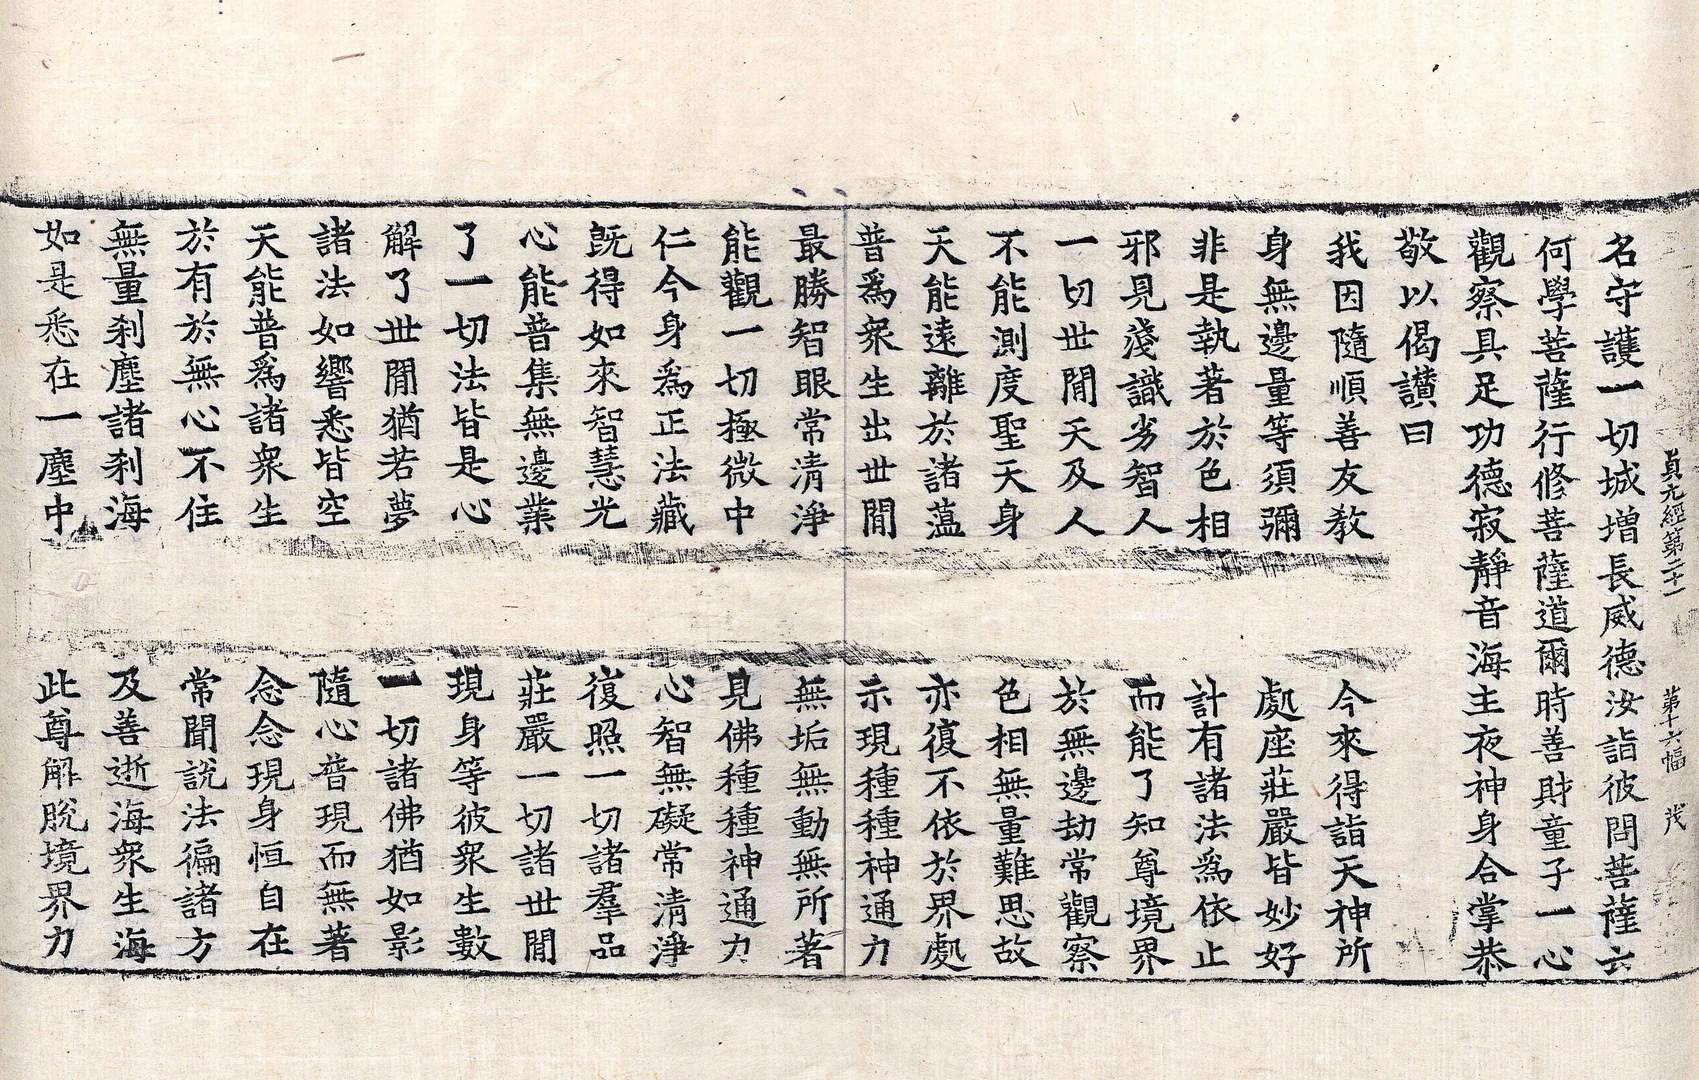 貞元經第二十一 第十六幅 茂
名守護一切城增長威德汝詣彼問菩薩云
何學菩薩行修菩薩道爾時善財童子一心
觀察具足功德寂靜音海主夜神身合掌恭
敬以偈讃曰
我因隨順善友教 今來得詣天神所
身無邊量等須彌 處座莊嚴皆妙好
非是執著於色相 計有諸法爲依止
邪見淺識劣智人 而能了知尊境界
一切世閒天及人 於無邊劫常觀察
不能測度聖天身 色相無量難思故
天能遠離於諸薀 亦復不依於界處
普爲衆生出世閒 示現種種神通力
最勝智眼常清淨 無垢無動無所著
能觀一切極微中 見佛種種神通力
仁今身爲正法藏 心智無礙常清淨
旣得如來智慧光 復照一切諸羣品
心能普集無邊業 莊嚴一切諸世閒
了一切法皆是心 現身等彼衆生數
解了世閒猶若夢 一切諸佛猶如影
諸法如響悉皆空 隨心普現而無著
天能普爲諸衆生 念念現身恒自在
於有於無心不住 常聞說法徧諸方
無量刹塵諸刹海 及善逝海衆生海
如是悉在一塵中 此尊解脫境界力